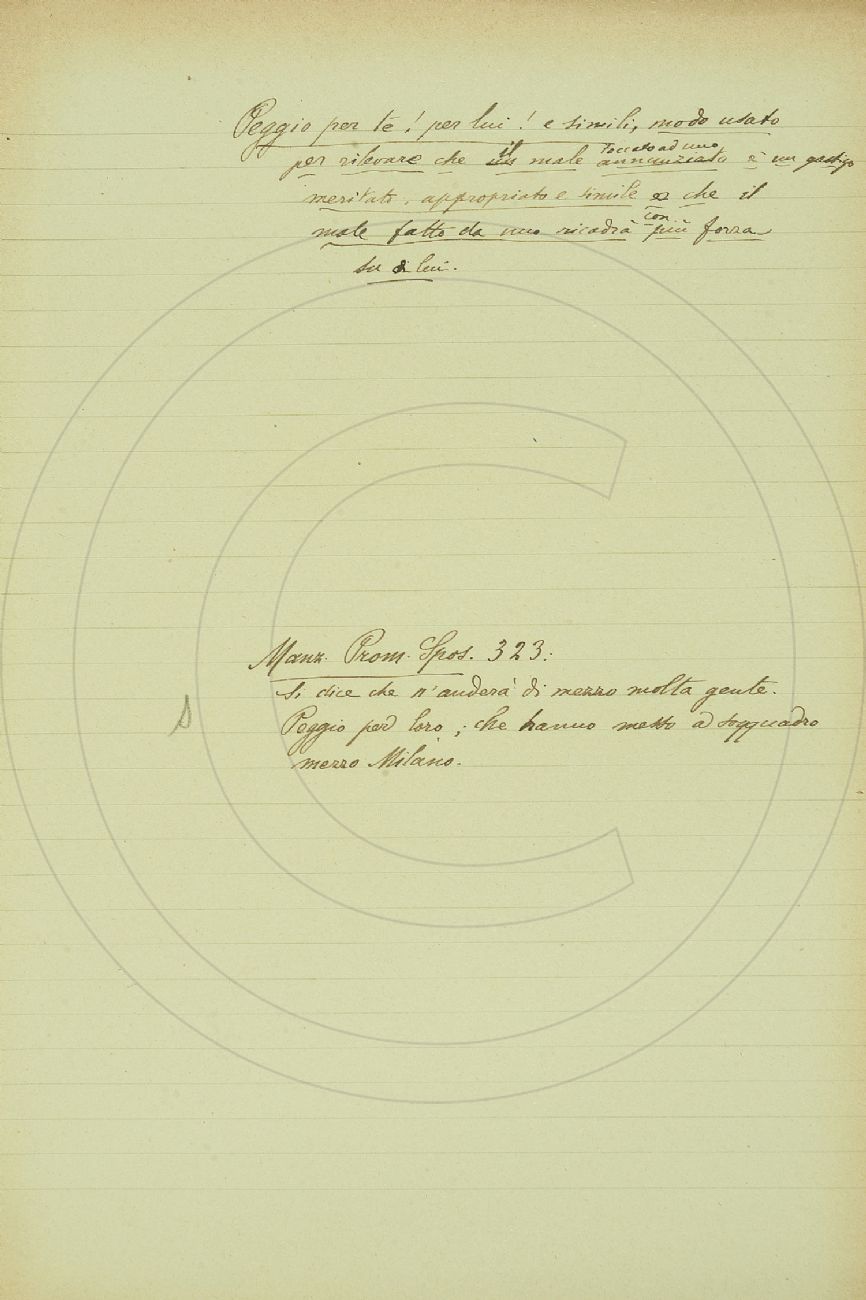 Peggio per te! per lui! e simili, modo usato
toccato ad uno
per rilevare che il male annunziato è un gastigo
meritato, appropriato e simile o che il
con
male fatto da uno ricadrà più forza
su di lui.
Manz. Prom. Spos. 323:
Si dice che n'anderà di mezzo molta gente.
Peggio per loro; che hanno messo a soqquadro
mezzo Milano.